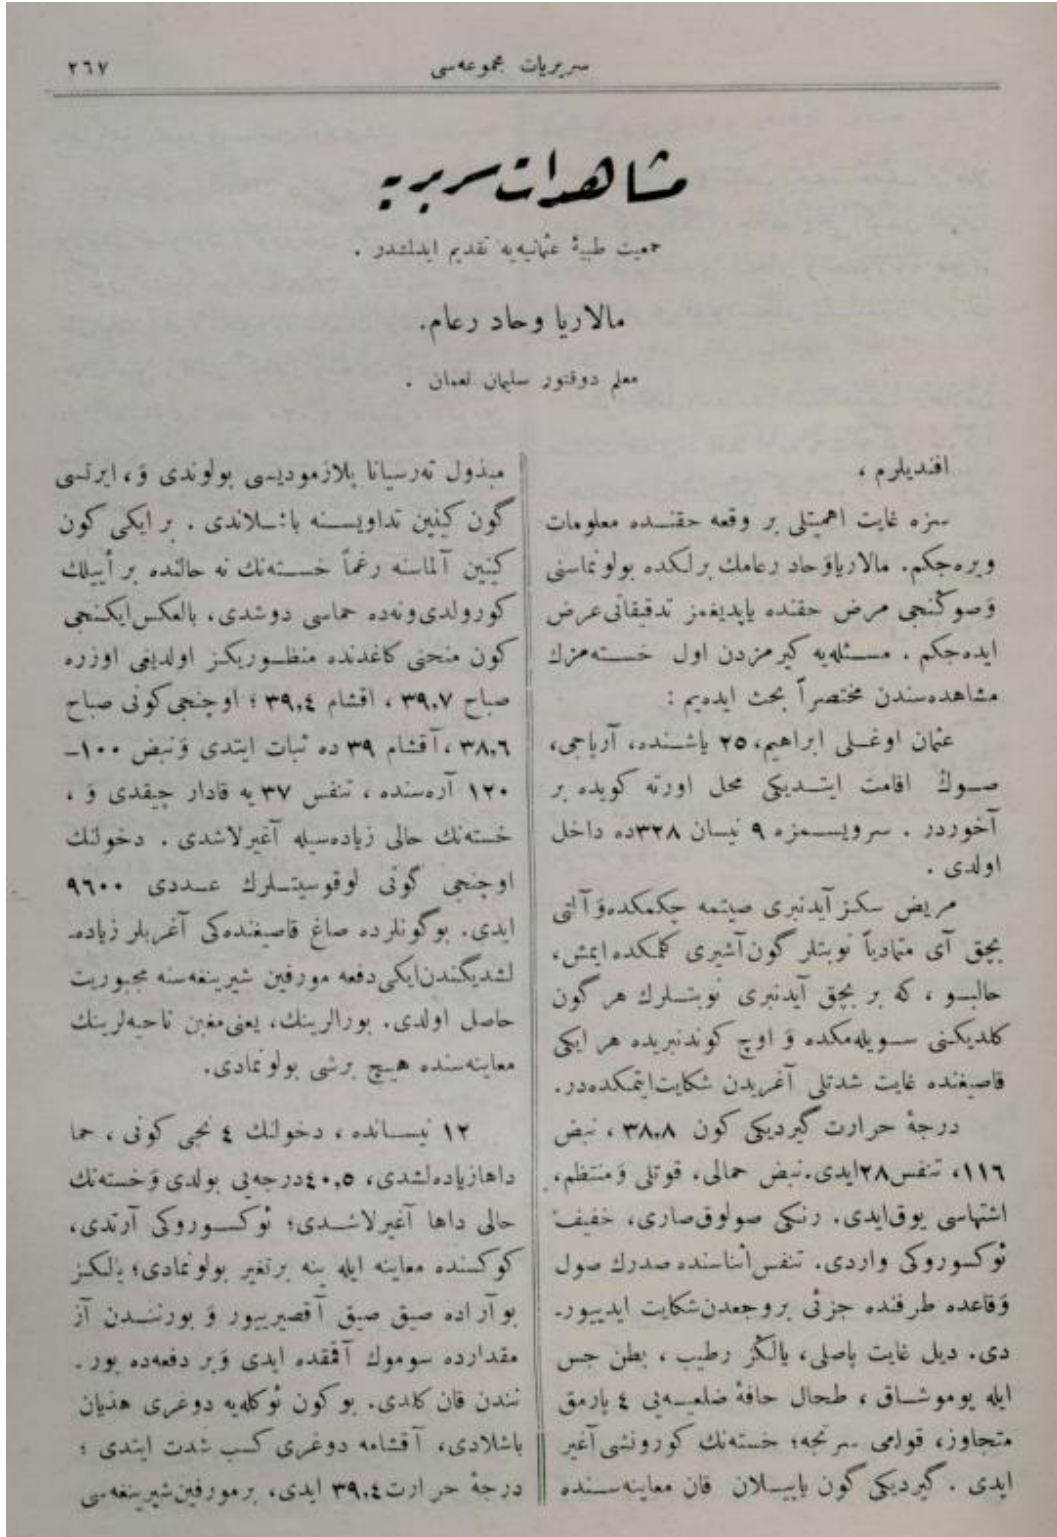 سریریات مجموعه‌سی
٢٦٧
مشاهدات سریریه
جمعیت طبیهٔ عثمانیه‌یه تقدیم ایدلشدر .
مالاریا وحاد رعام.
معلم دوقتور سلیمان نعمان .
افندیلرم ،
سزه غایت اهمیتلی بر وقعه حقنده معلومات
ویره‌جکم. مالاریا وَحاد رعامك برلكده بولونماسنی
وَصوڭنجی مرض حقنده یاپدیغمز تدقیقاتی عرض
ایده‌جکم . مسئله‌یه کیرمزدن اول خسته‌مزك
مشاهده‌سندن مختصراً بحث ایده‌یم :
عثمان اوغلی ابراهیم، ٢٥ یاشنده، آرپاجی،
صوڭ اقامت ایتدیکی محل اورته کویده بر
آخوردر . سرویسمزه ٩ نیسان ٣٢٨ده داخل
اولدی .
مریض سکز آیدنبری صیتمه چکمکده وَ آلتی
بچق آی متمادیاً نوبتلر گون آشیری کلمکده ایمش،
حالبو ، که بر بچق آیدنبری نوبتلرك هر گون
کلدیکنی سویله‌مکده وَ اوچ کوندنبریده هر ایکی
قاصیغنده غایت شدتلی آغریدن شکایت ایتمکده‌در.
درجهٔ حرارت گیردیکی کون ٣٨,٨ ، نبض
١١٦، تنفس ٢٨ ایدی. نبض حمالی، قوتلی وَ منتظم،
اشتهاسی یوق ایدی. رنکی صولوق صاری، خفیف
ئوکسوروکی واردی. تنفس اثناسنده صدرك صول
وَقاعده طرفنده جزئی بر وجعدن شکایت ایدییور-
دی. دیل غایت پاصلی، یالڭز رطیب ، بطن جس
ایله یوموشاق ، طحال حافهٔ ضلعیه‌یی ٤ پارمق
متجاوز، قوامی سرتجه؛ خسته‌نك کورونشی آغیر
ایدی . گیردیکی گون یاپیلان قان معاینه‌سنده
مبذول ته‌رسیانا پلازمودیسی بولوندی وَ، ایرتسی
گون کینین تداویسنه باشلاندی . بر ایکی کون
کینین آلماسنه رغماً خسته‌نك نه حالنده بر أییلك
کورولدی ونه‌ده حماسی دوشدی، بالعکس ایکنجی
کون منحنی کاغدنده منظوریکز اولدیغی اوزره
صباح ٣٩,٧ ، اقشام ٣٩,٤ ؛ اوچنجی کونی صباح
٣٨,٦ ، آقشام ٣٩ ده ثبات ایتدی وَنبض ١٠٠-
١٢٠ آره‌سنده ، تنفس ٣٧ یه قادار چیقدی وَ ،
خسته‌نك حالی زیاده‌سیله آغیرلاشدی . دخولنك
اوچنجی گونی لوقوسیتلرك عددی ٩٦٠٠
ایدی. بوگونلرده صاغ قاصیغنده‌کی آغریلر زیاده-
لشدیگندن ایکی دفعه مورفین شیرینغه‌سنه مجبوریت
حاصل اولدی. بورالرینك، یعنی مغبن ناحیه‌لرینك
معاینه‌سنده هیچ برشی بولونمادی.
١٢ نیسانده ، دخولنك ٤ نجی کونی ، حما
داها زیاده‌لشدی، ٤٠,٥ درجه‌یی بولدی وَ خسته‌نك
حالی داها آغیرلاشدی؛ ئوکسوروکی آرتدی،
کوکسنده معاینه ایله ینه برتغیر بولونمادی؛ یالکز
بو آراده صیق صیق آقصیرییور وَ بورنندن آز
مقدارده سوموك آقمقده ایدی وَبر دفعه‌ده بور-
نندن قان کلدی. بو کون ئوکله‌یه دوغری هذیان
باشلادی، آقشامه دوغری کسب شدت ایتدی ؛
درجهٔ حرارت ٣٩,٤ ایدی، بر مورفین شیرینغه‌سی